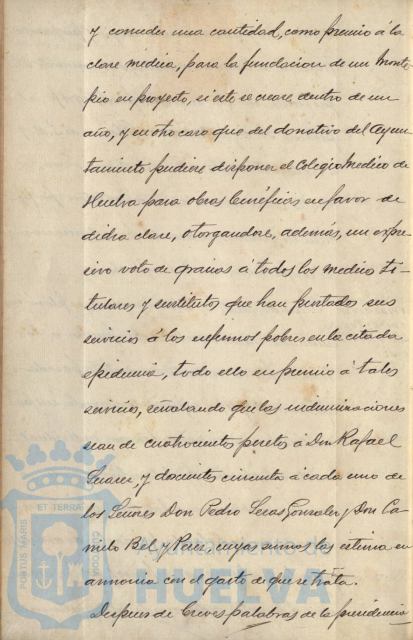 y conceder una cantidad, como premio á la
clase médica, para la fundacion de un Monte-
pio en proyecto, si este se crease dentro de un
año, y en otro caso que del donativo del Ayun-
tamiento pudiese disponer el Colegio Médico de
Huelva para obras benéficas en favor de
dicha clase, otorgandose, además, un expre-
sivo voto de gracias á todos los medicos ti-
tulares y sustitutos que han prestados sus
servicios á los enfermos pobres en la citada
epidemia, todo ello en premio á tales
servicios, señalando que las indemnizaciones
sean de cuatrocientas pesetas á Don Rafael
Suarez, y doscientas cincuenta á cada uno de
los Señores Don Pedro Seras Gonzalez y Don Ca-
milo Bel y Paez, cuyas sumas las estima en
armonia con el gasto de que se trata.
Despues de breves palabras de la presidencia
PORTUS MARIS ET TERRÆ CUSTODIA
HUELVA